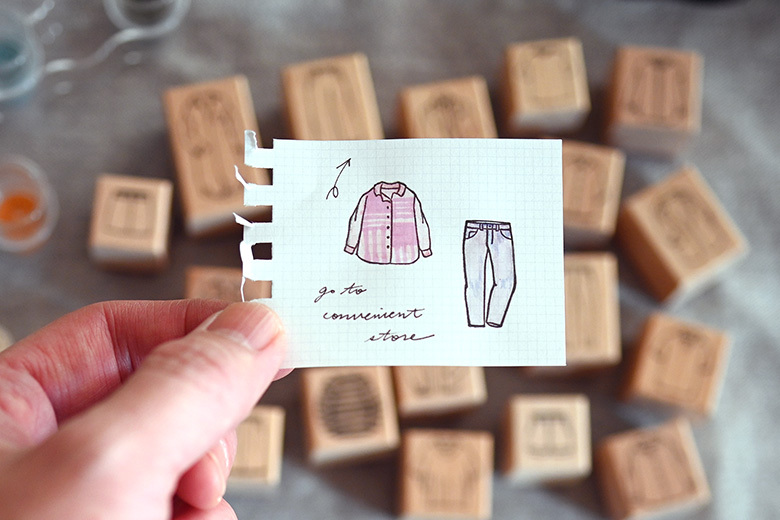 go to
convenient
store